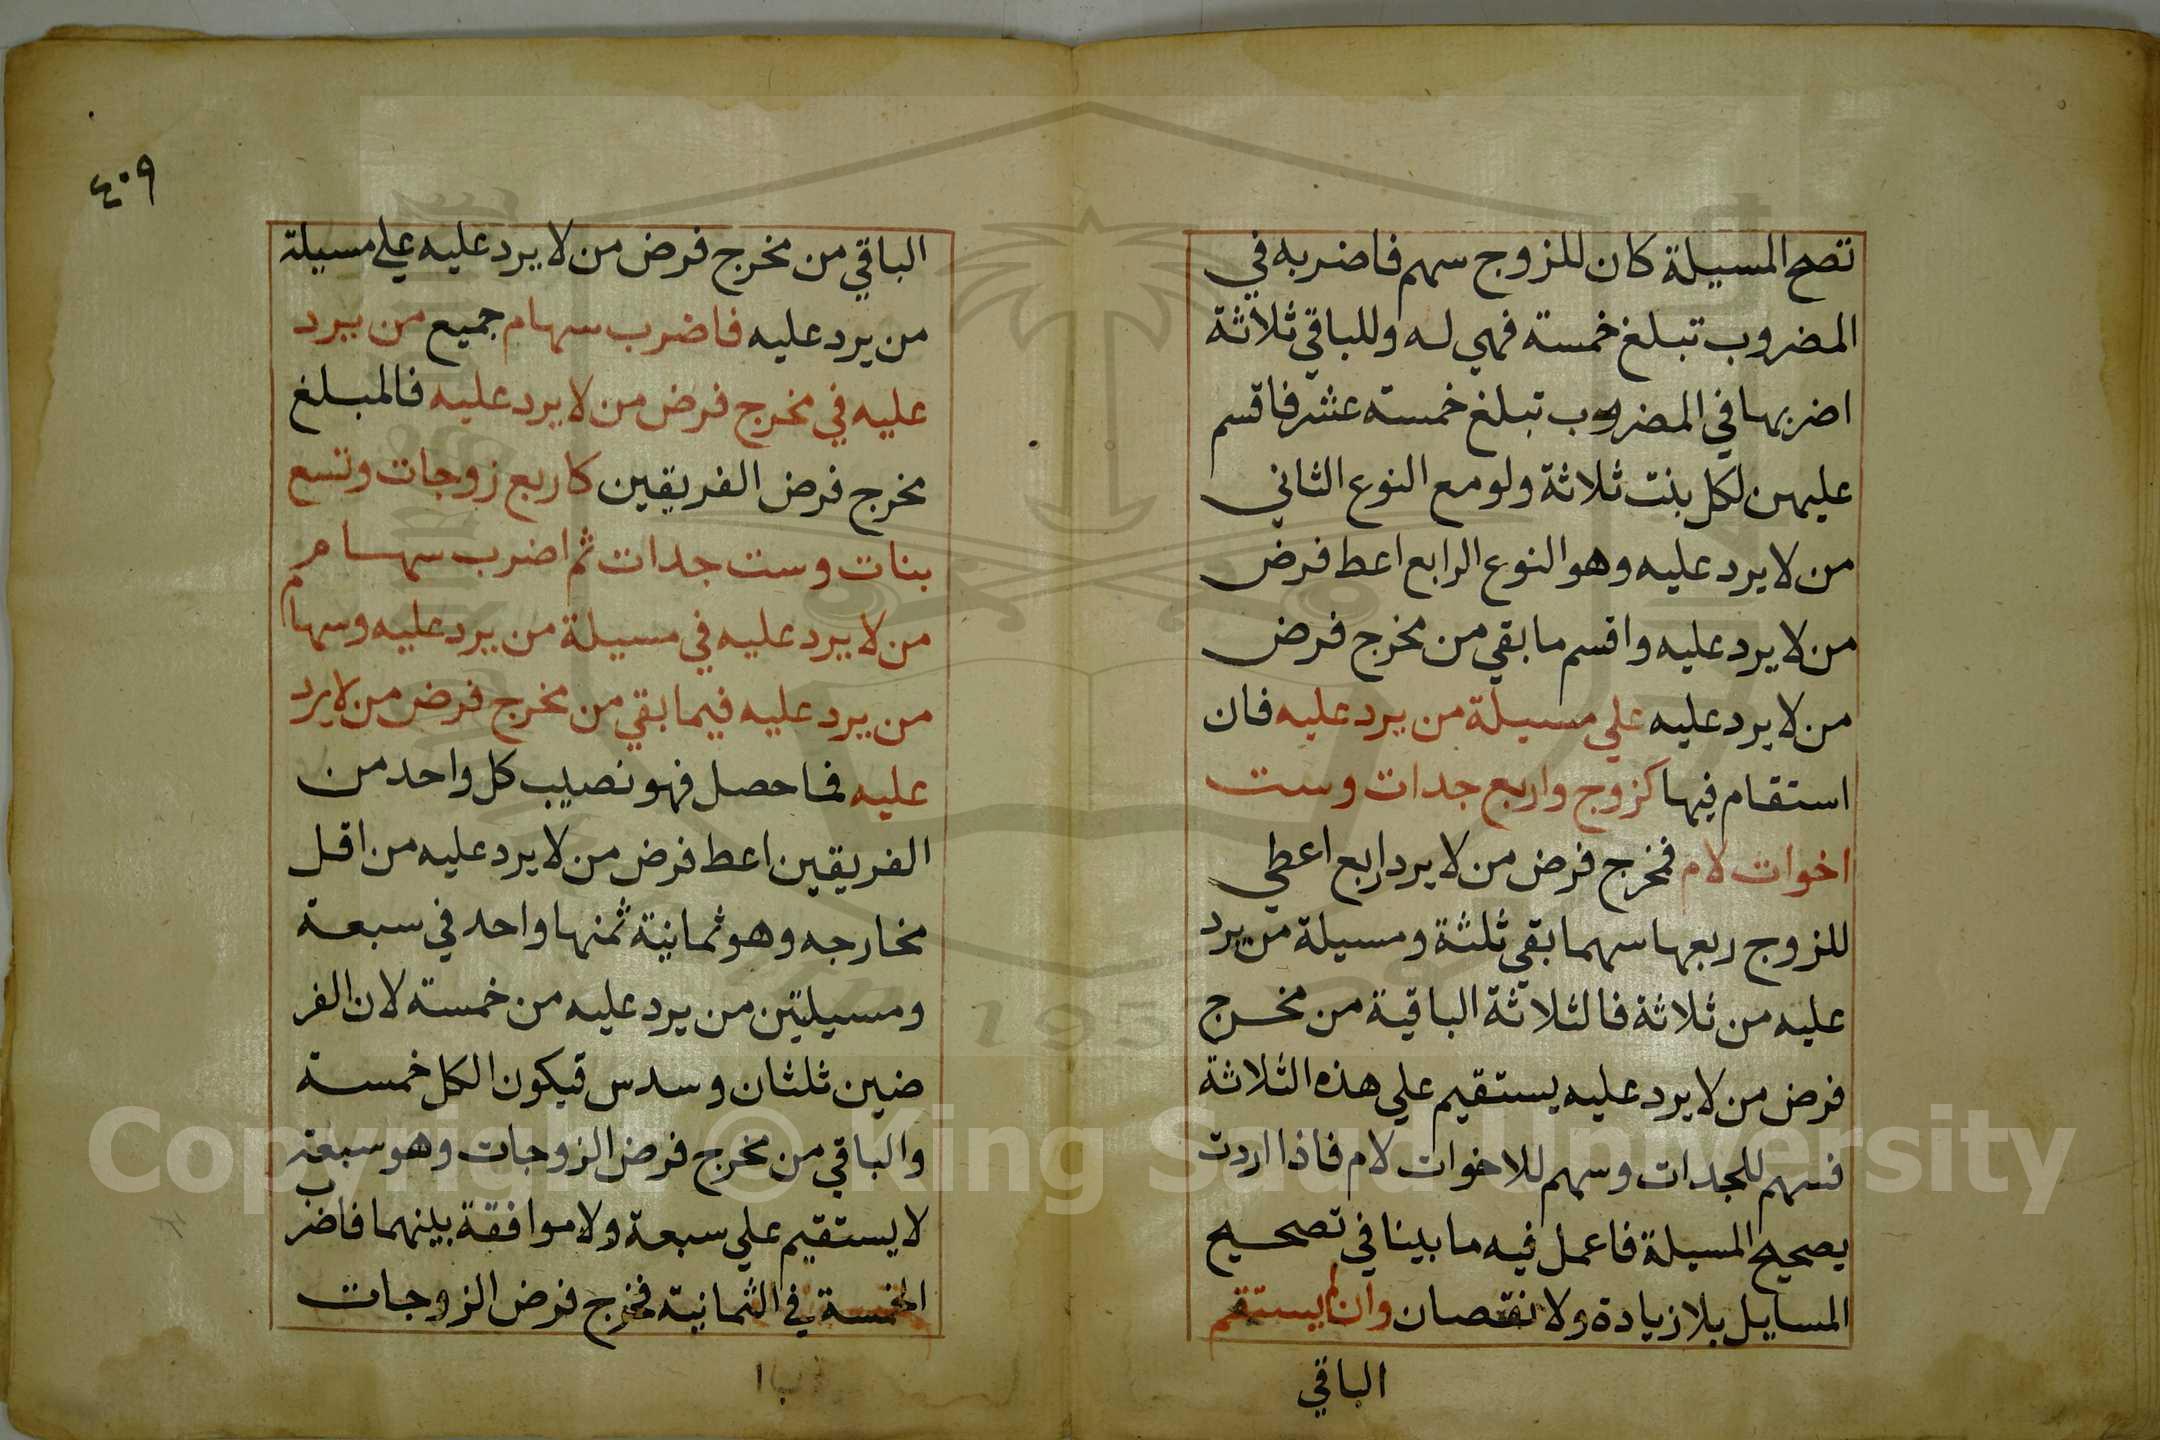 تصح المسيلة كان للزوج سهم فاضربه في
المضروب تبلغ خمسته فهي له وللباقي ثلاثة
اضربها في المضروب تبلغ خمسته عشر فاقسم
عليهن لكل بنت ثلاثة ولو مع النوع الثاني
من لا يرد عليه وهو النوع الرابع اعط فرض
من لا يرد عليه واقسم ما بقي من مخرج فرض
من لا يرد عليه علي مسيلة من يرد عليه فان
استقام فيها كزوج واربع جدات وست
اخوات لام فمخرج فرض من لا يرد اربع اعطي
للزوج ربعها سهما بقي ثلثة ومسيلة من يرد
عليه من ثلاثة فالثلاثة الباقية من مخرج
فرض من لا يرد عليه يستقيم علي هذه الثلاثة
فسهم للجدات وسهم للاخوات لام فاذا اردت
يصحيح المسيلة فاعمل فيه ما بينا في تصحيح
المسايل بلا زيادة ولا نقصان وان لم يستقم
الباقي
٤٠٩
الباقي من مخرج فرض من لا يرد عليه علي مسيلة
من يرد عليه فاضرب سهام جميع من يرد
عليه في مخرج فرض من لا يرد عليه فالمبلغ
مخرج فرض الفريقين كاربع زوجات وتسع
بنات وست جدات ثم اضرب سهام
من لا يرد عليه في مسيلة من يرد عليه وسهام
من يرد عليه فيما بقي من مخرج فرض من لا يرد
عليه فما حصل فهو نصيب كل واحد من
الفريقين اعط فرض من لا يرد عليه من اقل
مخارجه وهو ثمانية ثمنها واحد في سبعة
ومسيلتين من يرد عليه من خمسته لان الفر
ضين ثلثان وسدس فيكون الكل خمسة
والباقي من مخرج فرض الزوجات وهو سبعة
لا يستقيم علي سبعة ولا موافقة بينهما فاضرب
الخمسة في الثمانية فمخرج فرض الزوجات
Copyright © King Saud University